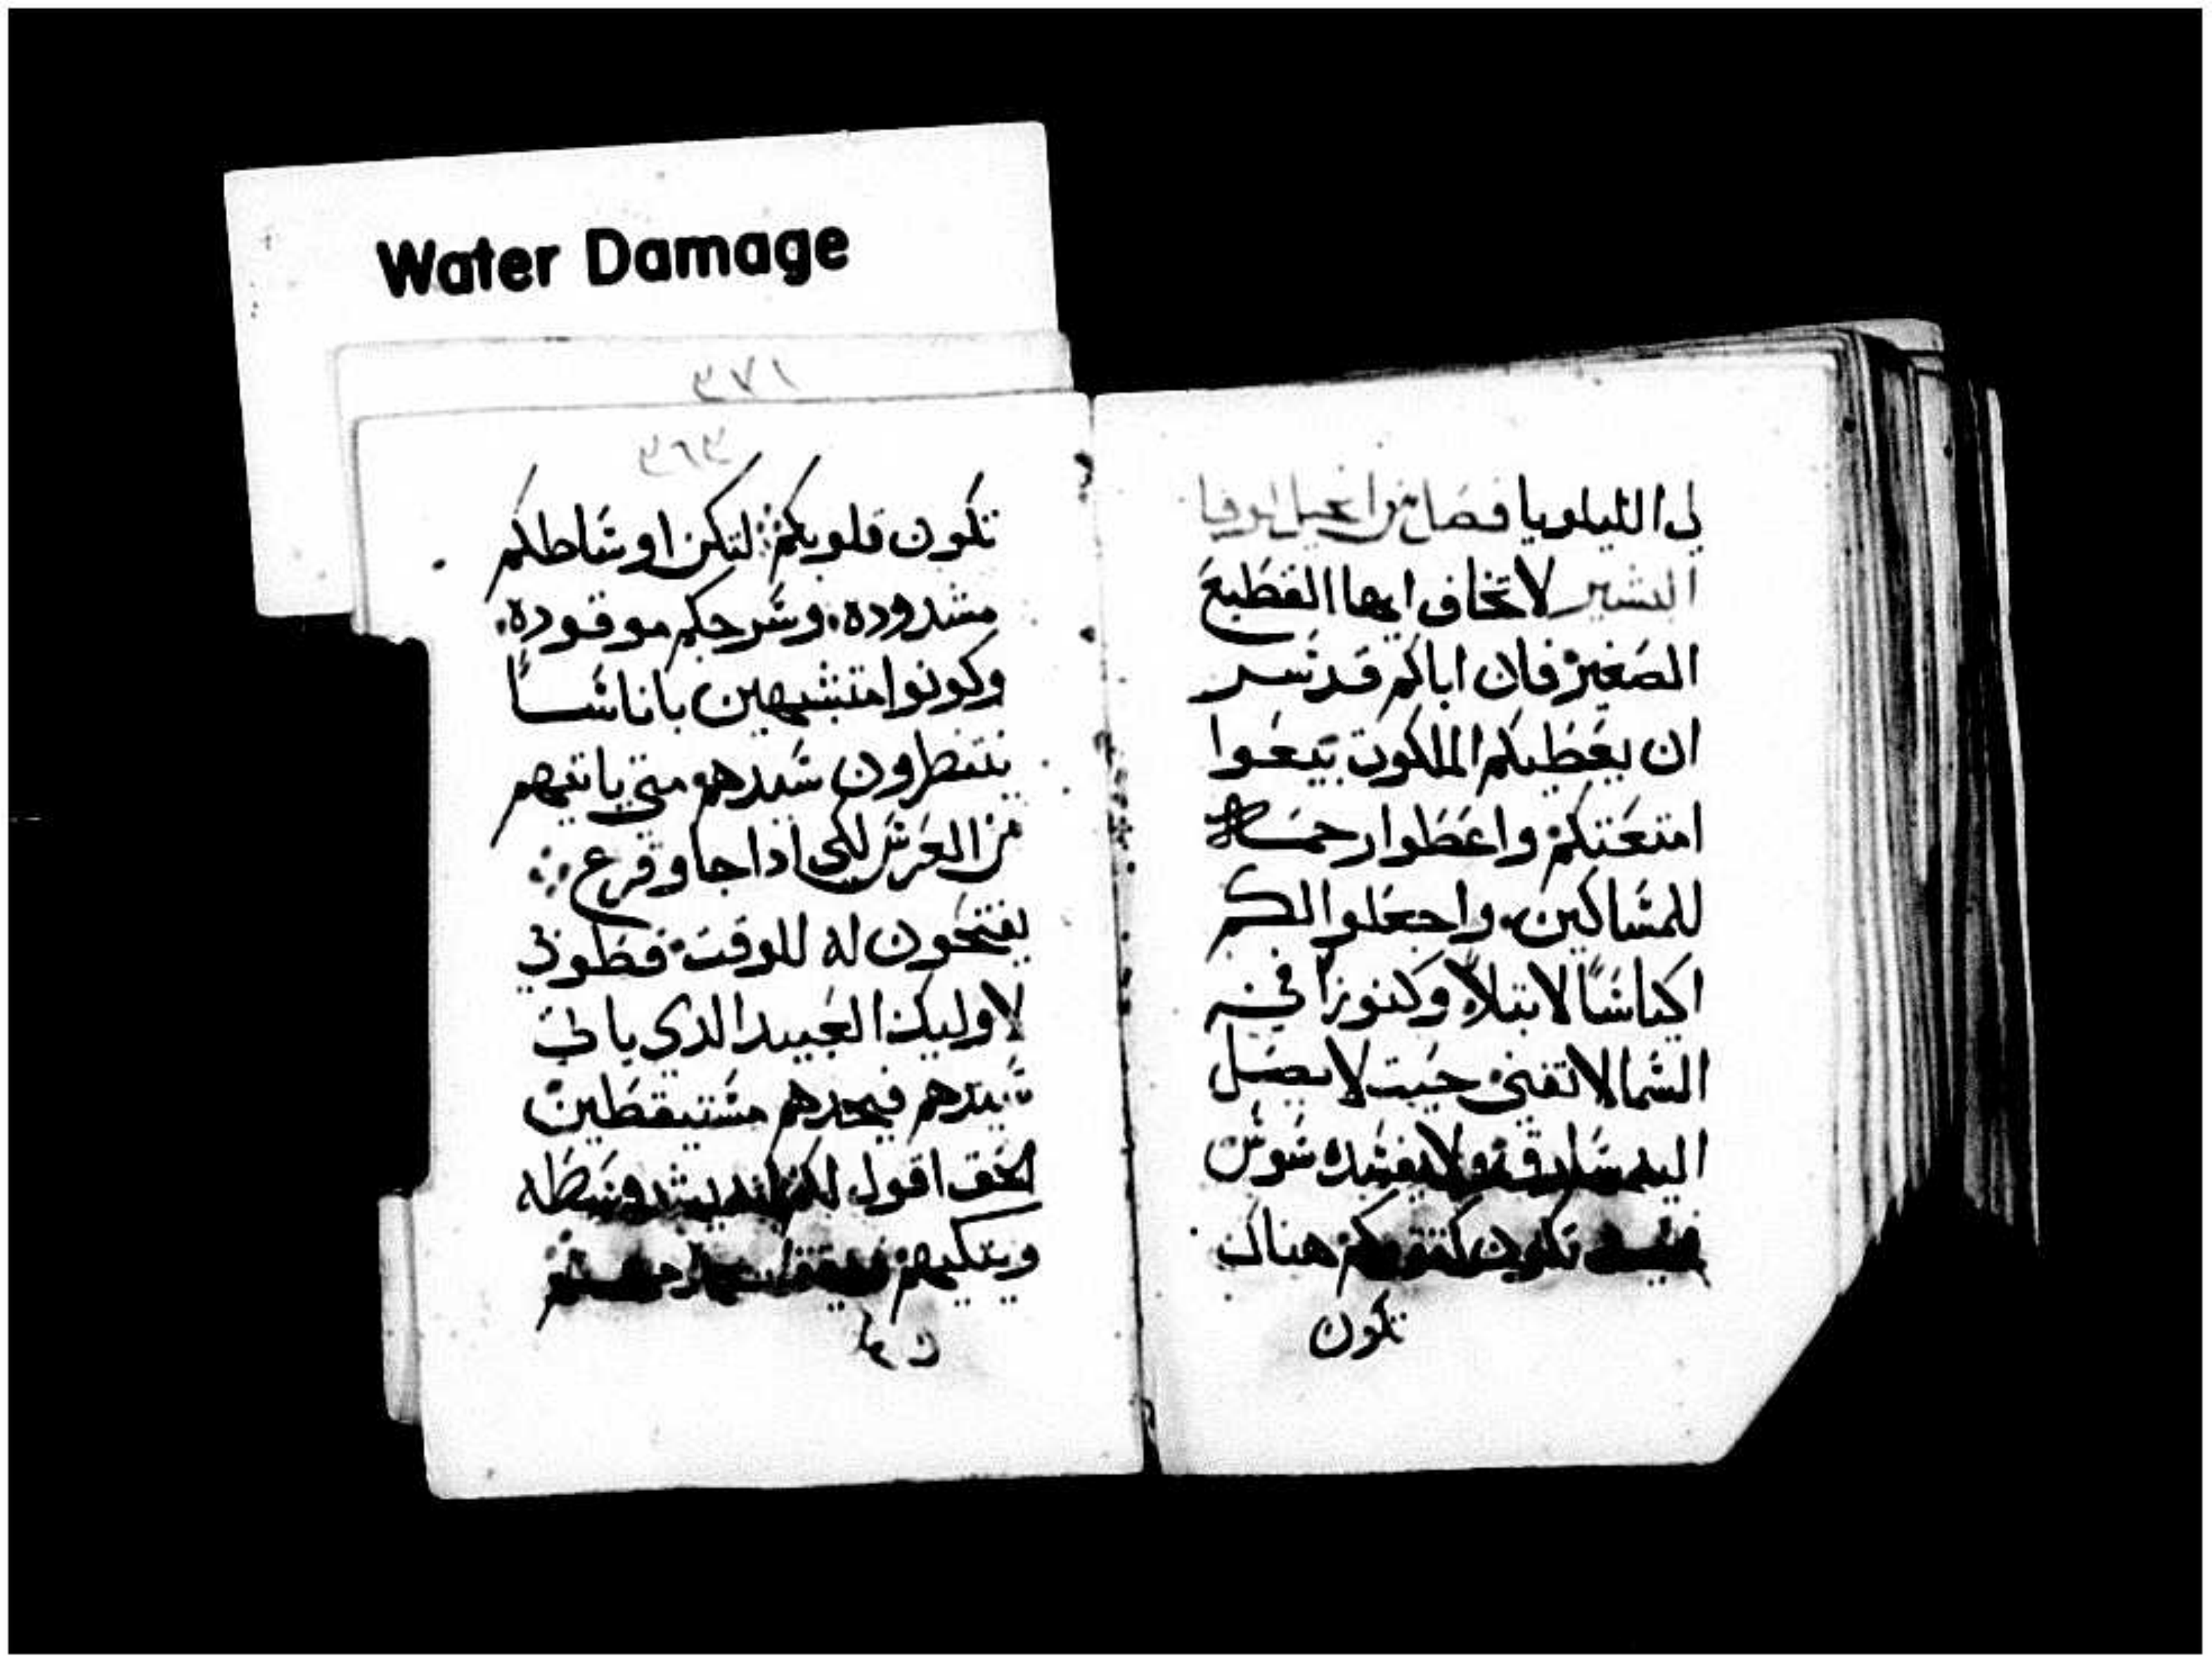 Water Damage
٣٧١
٣٦٣
لي الليلويا فصل من انجيل لوقا
البشير لا تخاف ايها القطيع
الصغير فان اباكم قد سر
ان يعطيكم الملكوت بيعوا
امتعتكم واعطوا رحمه
للمساكين. واجعلوا لكم
اكياسًا لا تبلا وكنوزًا في
السما لا تفنى حيت لا يصل
اليه سارق ولا يفسده سوس
تكون كنوزكم هناك
تكون
تكون قلوبكم لتكن اوساطكم
مشدوده. وسرجكم موقوده.
وكونوا متشبهين باناسًا
ينتظرون سيدهم متي ياتيهم
من العرس لكي اذا جا وقرع
يفتحون له للوقت فطوبي
لاوليك العبيد الذي ياتي
سيدهم فيجدهم مستيقظين
الحق اقول لكم انه يشد وسطه
ويتكيهم